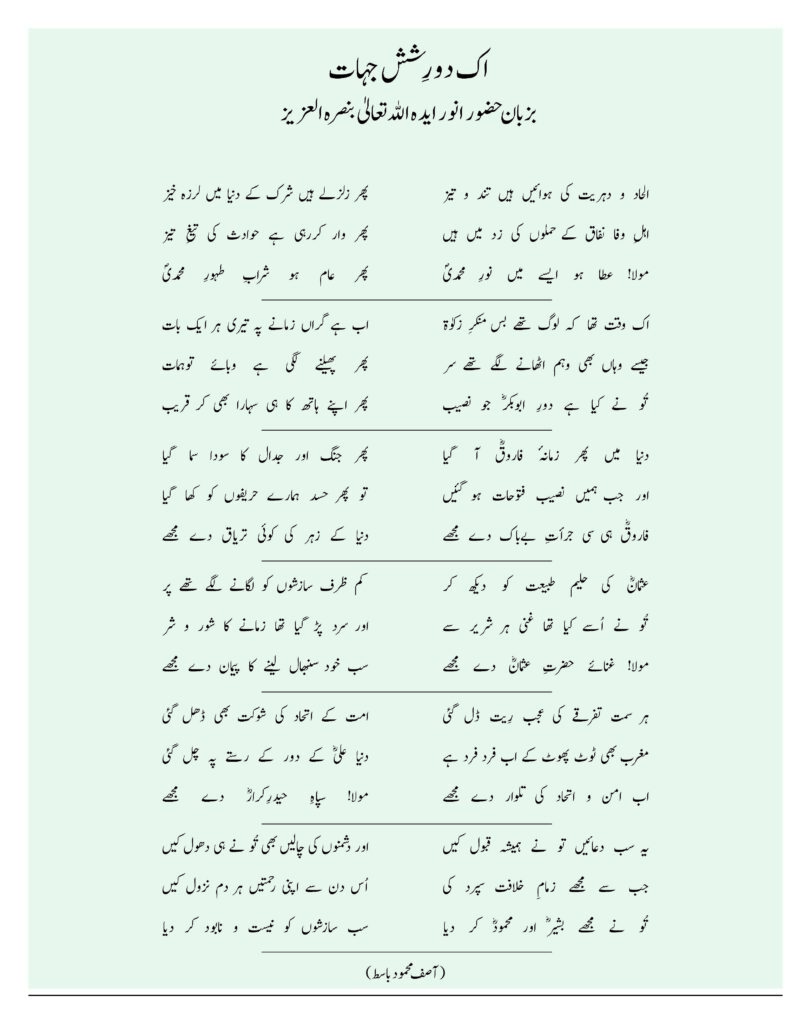 اک دورِ شش جہات
بزبان حضور انور ایدہ اللہ تعالیٰ بنصرہ العزیز
الحاد و دہریت کی ہوائیں ہیں تند و تیز پھر زلزلے ہیں شرک کے دنیا میں لرزہ خیز
اہلِ وفا نفاق کے حملوں کی زد میں ہیں پھر وار کررہی ہے حوادث کی تیغِ تیز
مولا! عطا ہو ایسے میں نورِ محمدیؐ پھر عام ہو شرابِ طہورِ محمدیؐ
اک وقت تھا کہ لوگ تھے بس منکرِ زکوٰۃ اب ہے گراں زمانے پہ تیری ہر ایک بات
جیسے وہاں بھی وہم اٹھانے لگے تھے سر پھر پھیلنے لگی ہے وبائے توہمات
تُو نے کیا ہے دورِ ابوبکرؓ جو نصیب پھر اپنے ہاتھ کا ہی سہارا بھی کر قریب
دنیا میں پھر زمانۂ فاروقؓ آ گیا پھر جنگ اور جدال کا سودا سما گیا
اور جب ہمیں نصیب فتوحات ہو گئیں تو پھر حسد ہمارے حریفوں کو کھا گیا
فاروقؓ ہی سی جرأتِ بےباک دے مجھے دنیا کے زہر کی کوئی تریاق دے مجھے
عثمانؓ کی حلیم طبیعت کو دیکھ کر کم ظرف سازشوں کو لگانے لگے تھے پر
تُو نے اُسے کیا تھا غنی ہر شریر سے اور سرد پڑ گیا تھا زمانے کا شور و شر
مولا! غنائے حضرتِ عثمانؓ دے مجھے سب خود سنبھال لینے کا پیمان دے مجھے
ہر سمت تفرقے کی عجب رِیت ڈل گئی امت کے اتحاد کی شوکت بھی ڈھل گئی
مغرب بھی ٹوٹ پھوٹ کے اب فرد فرد ہے دنیا علیؓ کے دور کے رستے پہ چل گئی
اب امن و اتحاد کی تلوار دے مجھے مولا! سپاہِ حیدرِکرارؓ دے مجھے
یہ سب دعائیں تو نے ہمیشہ قبول کیں اور دشمنوں کی چالیں بھی تُو نے ہی دھول کیں
جب سے مجھے زمامِ خلافت سپرد کی اُس دن سے اپنی رحمتیں ہر دم نزول کیں
تُو نے مجھے بشیرؓ اور محمودؓ کر دیا سب سازشوں کو نیست و نابود کر دیا
(آصف محمود باسط)